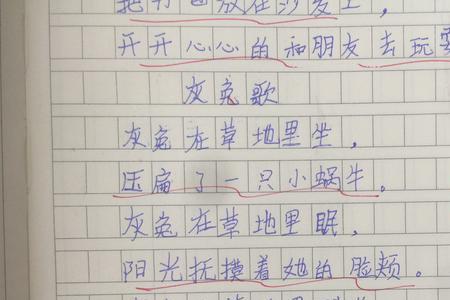 把书包放在沙发上，
开开心心的和朋友去玩耍
灰兔歌
灰兔在草地里坐，
压扁了一只小蜗牛。
灰兔在草地里眠，
阳光抚摸着她的脸颊。